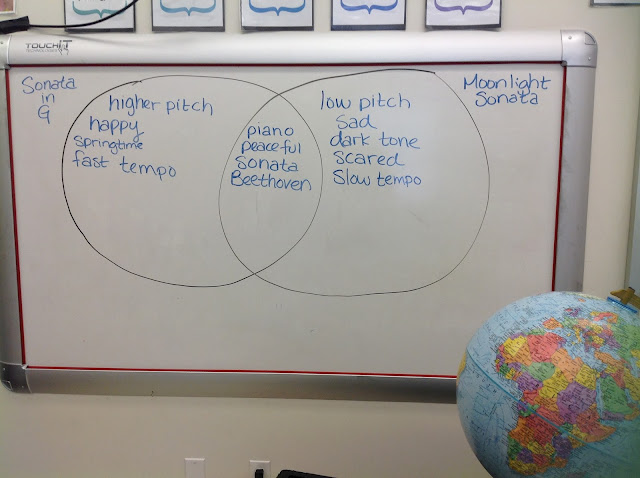 TOUCHIT
Sonata
in
G
higher pitch
happy
springtime
fast tempo
piano
peaceful
Sonata
Beethoven
low pitch
sad
dark tone
scared
Slow tempo
Moonlight
Sonata